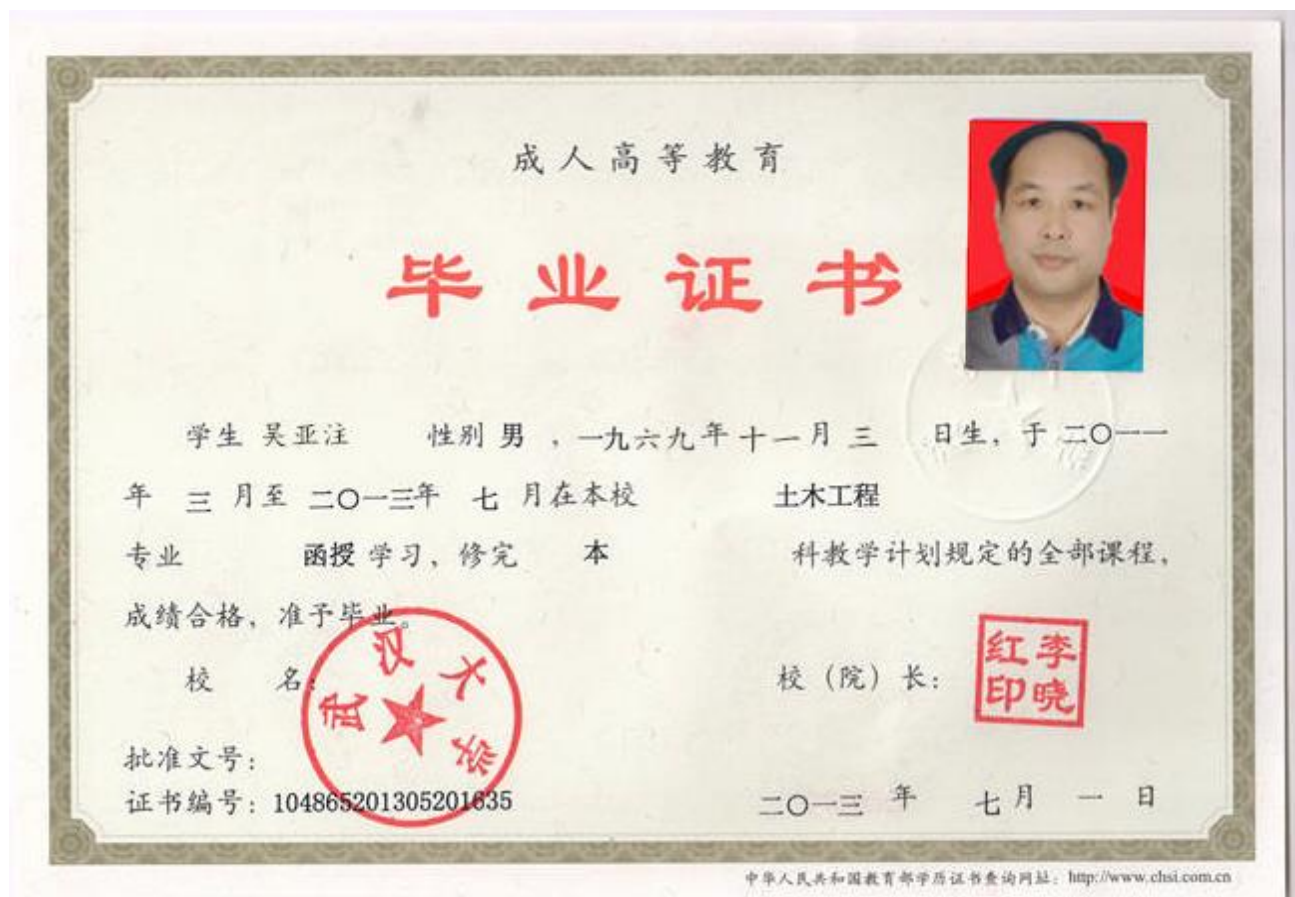 成人高等教育
毕业证书
学生 吴亚注 性别 男 ，一九六九年十一月三 日生，于 二〇一一
年 三 月至 二〇一三年 七 月在本校 土木工程
专业 函授 学习，修完 本 科教学计划规定的全部课程，
成绩合格，准予毕业。
校 名： 校（院）长：
武汉大学
李晓红印
批准文号：
证书编号：104865201305201635 二〇一三 年 七 月 一 日
中华人民共和国教育部学历证书查询网址：http://www.chsi.com.cn